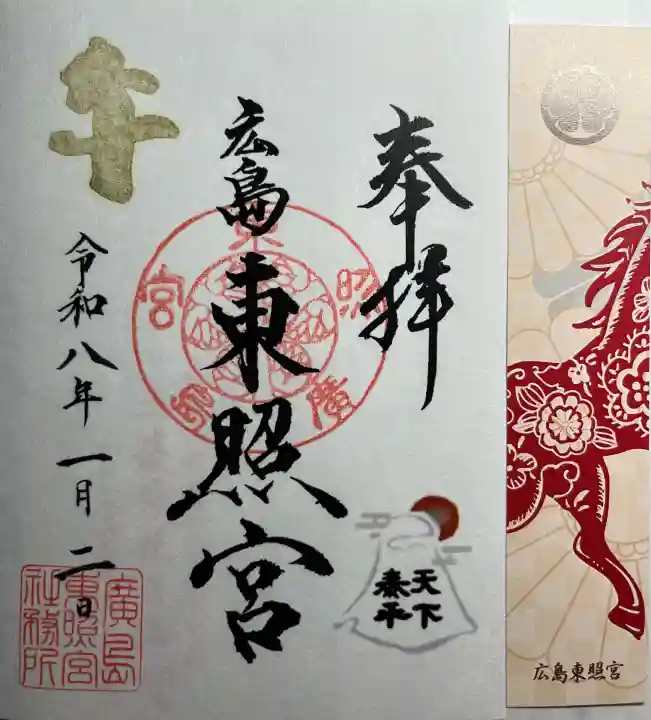 奉拝
広島東照宮
令和八年一月二日
天下
泰平
東
照
宮
廣
島
廣島
東照宮
社務所
広島東照宮